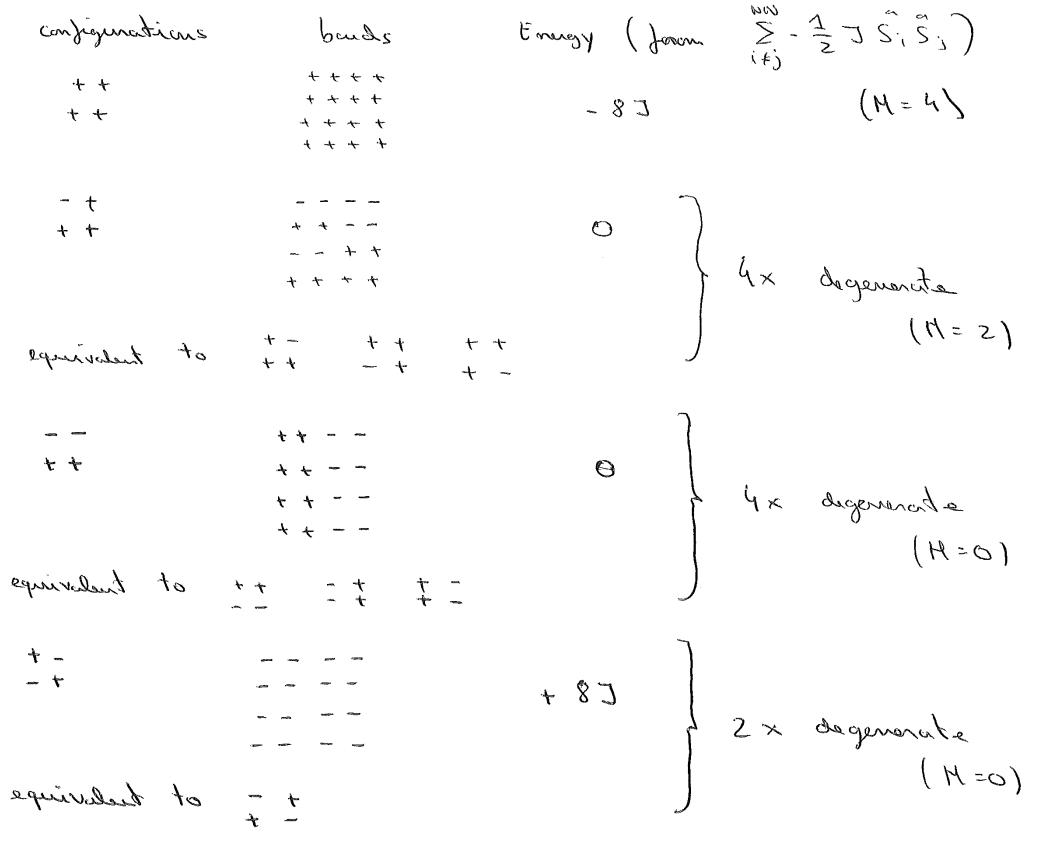 configurations bonds Energy (from NN ∑ i≠j - 1/2 J Ŝi Ŝj )
+ + + + + +
+ + + + + + - 8J (M = 4)
+ + + +
+ + + +
- + - - - -
+ + + + - - 0
- - + +
+ + + + 4x degenerate
(M = 2)
equivalent to + - + + + +
+ + - + + -
- - + + - -
+ + + + - - 0
+ + - - 4x degenerate
+ + - - (M = 0)
equivalent to + + - + + -
- - - + + -
+ - - - - -
- + - - - - + 8J
- - - - 2x degenerate
- - - - (M = 0)
equivalent to - +
+ -